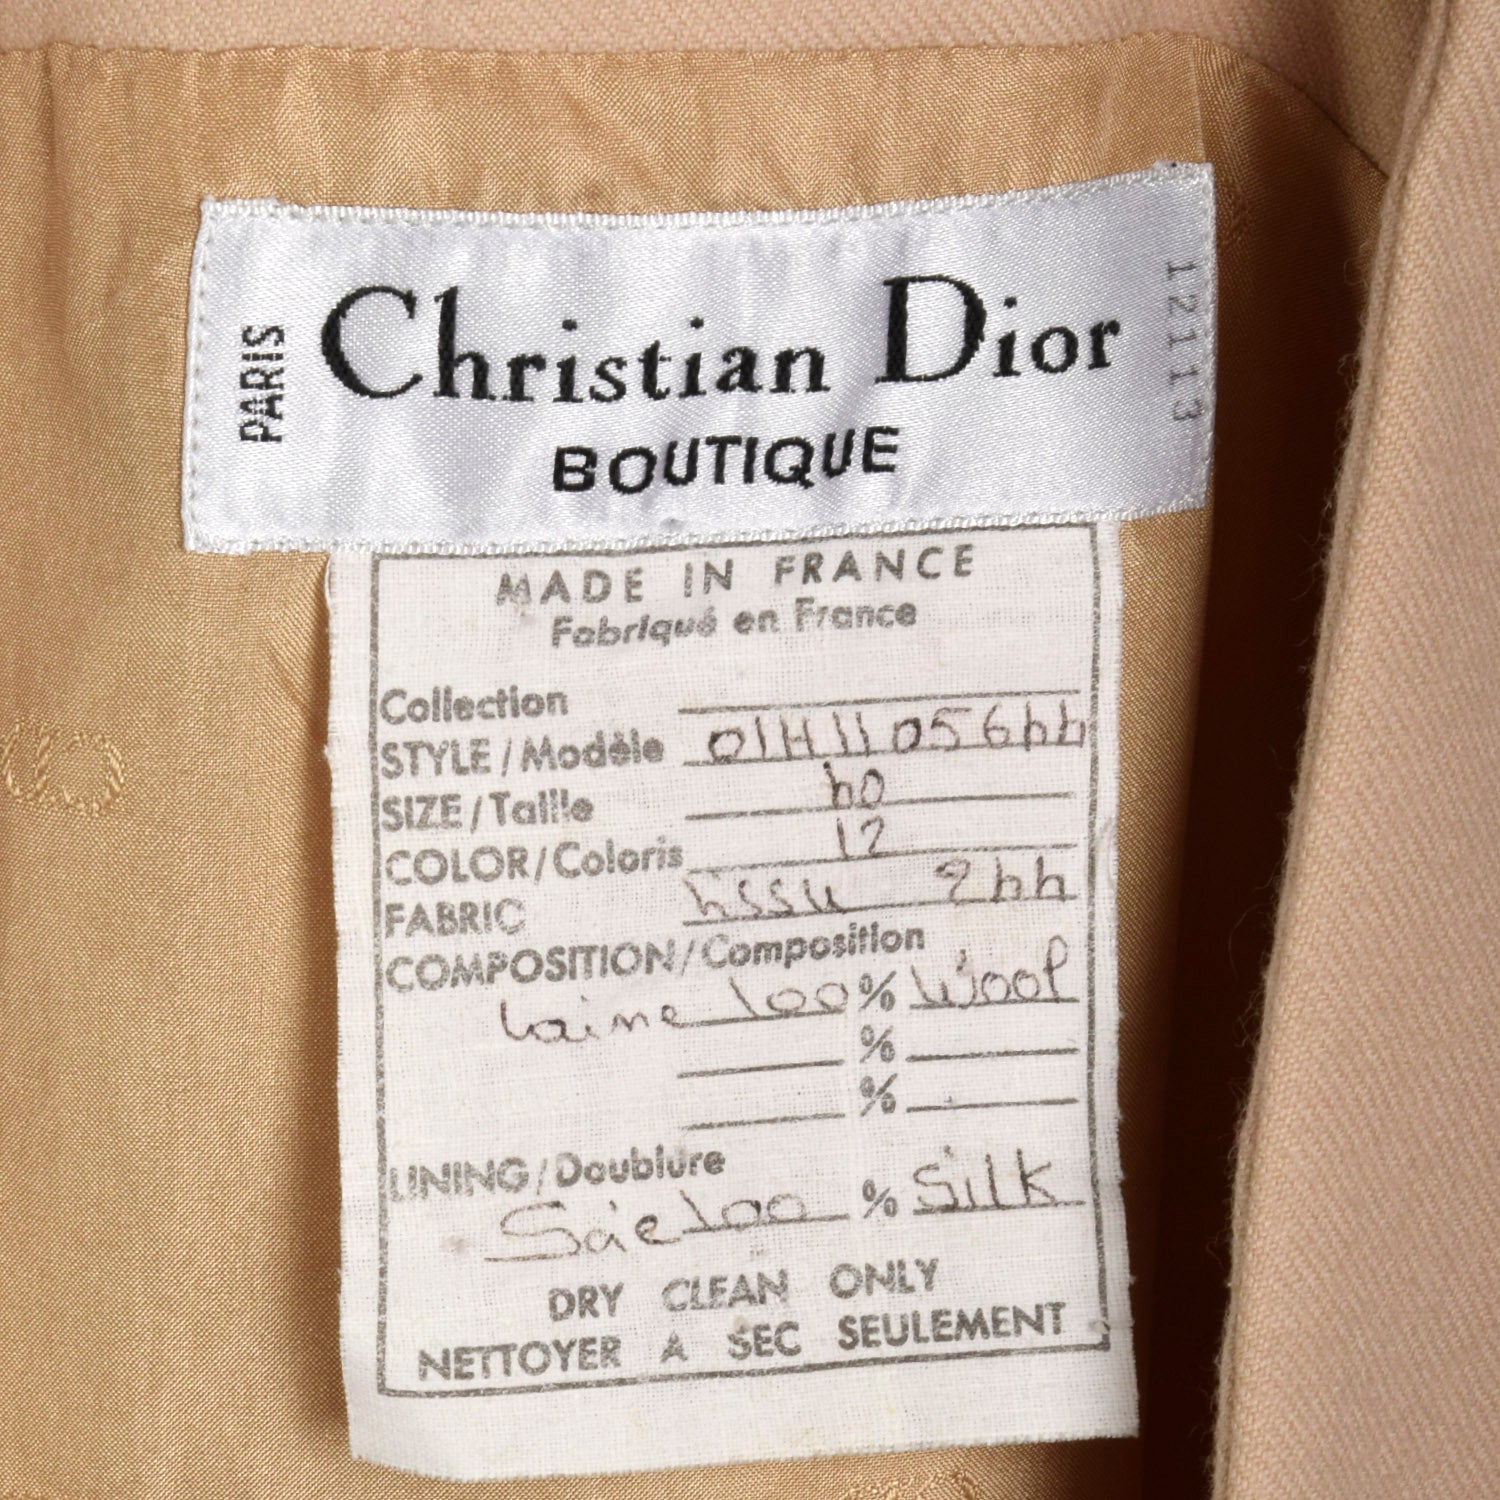 PARIS
Christian Dior
BOUTIQUE
12113
MADE IN FRANCE
Fabriqué en France
Collection
STYLE/Modèle 01H1105644
SIZE/Taille 40
COLOR/Coloris 12
FABRIC 944
COMPOSITION/Composition
Laine 100 % Wool
%
%
LINING/Doublure
Soie 100 % Silk
DRY CLEAN ONLY
NETTOYER A SEC SEULEMENT